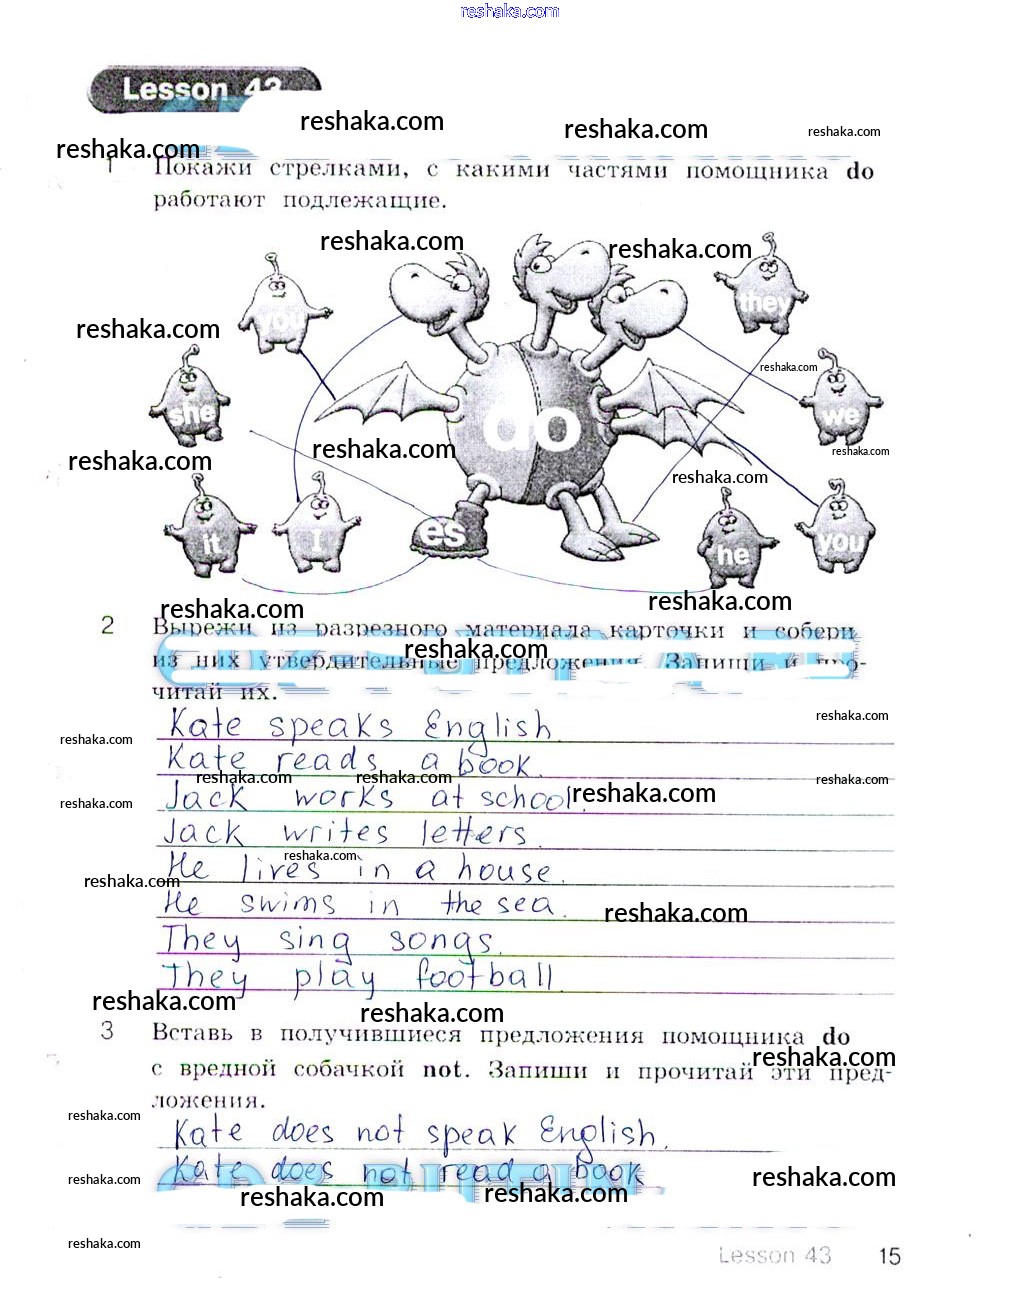 reshaka.com
Lesson 43
reshaka.com reshaka.com reshaka.com
reshaka.com
1 Покажи стрелками, с какими частями помощника do
работают подлежащие.
reshaka.com reshaka.com
you they
reshaka.com
reshaka.com
she do we
reshaka.com reshaka.com reshaka.com
reshaka.com
it I es he you
reshaka.com reshaka.com
2 Вырежи из разрезного материала карточки и собери
reshaka.com
из них утвердительные предложения. Запиши и про-
читай их.
Kate speaks English.
reshaka.com reshaka.com
Kate reads a book.
reshaka.com reshaka.com reshaka.com
Jack works at school.
reshaka.com reshaka.com
Jack writes letters.
reshaka.com
He lives in a house.
reshaka.com
He swims in the sea.
reshaka.com
They sing songs.
They play football.
reshaka.com reshaka.com
3 Вставь в получившиеся предложения помощника do
reshaka.com
с вредной собачкой not. Запиши и прочитай эти пред-
ложения.
reshaka.com
Kate does not speak English.
Kate does not read a book
reshaka.com reshaka.com reshaka.com reshaka.com
reshaka.com
Lesson 43 15